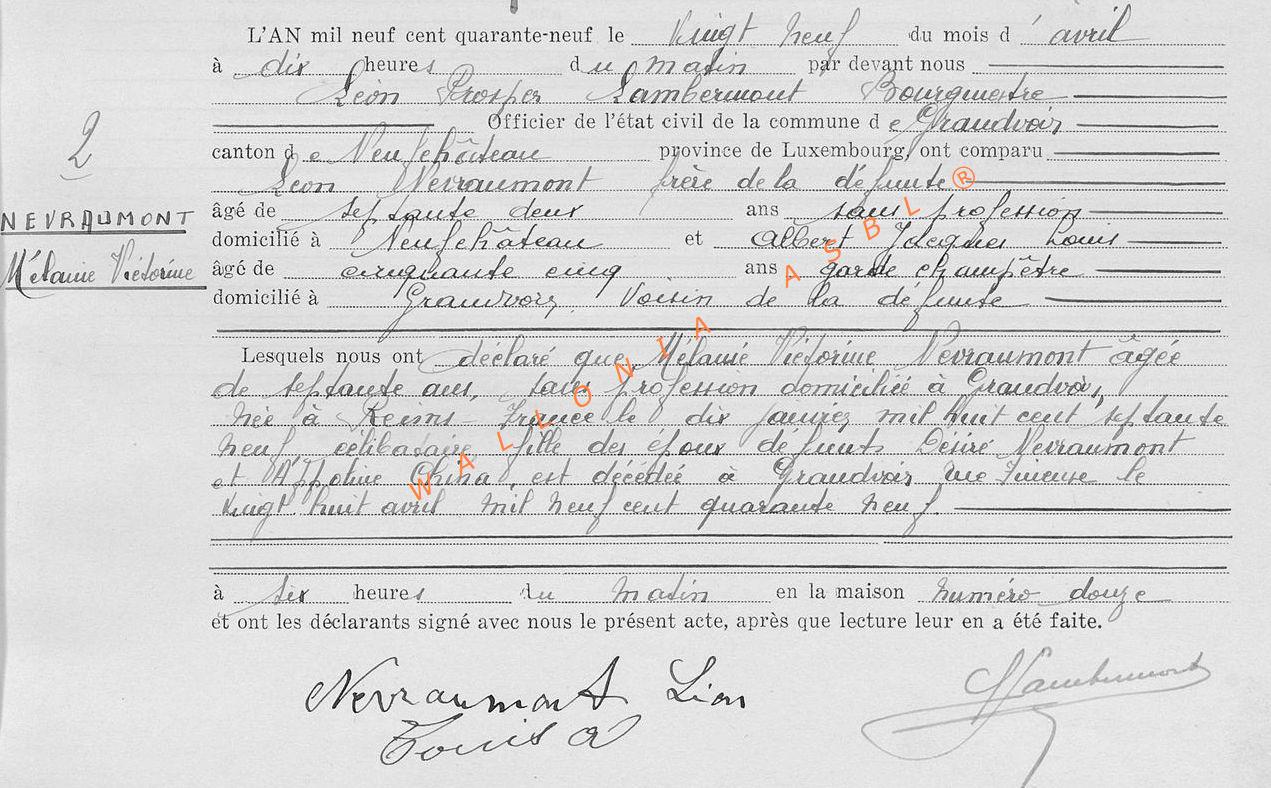 L'AN mil neuf cent quarante-neuf le vingt neuf du mois d' avril
à dix heures du matin par devant nous
Léon Prosper Lambermont Bourgmestre
Officier de l'état civil de la commune de Grandvoir
2
canton de Neufchâteau province de Luxembourg, ont comparu
Léon Nevraumont frère de la défunte
NEVRAUMONT
Mélanie Victorine
âgé de septante deux ans sans profession
domicilié à Neufchâteau et Albert Jacques Louis
âgé de cinquante cinq ans garde champêtre
domicilié à Grandvoir, Voisin de la défunte
Lesquels nous ont déclaré que Mélanie Victorine Nevraumont âgée
de septante ans, sans profession domiciliée à Grandvoir,
née à Reims France le dix janvier mil huit cent septante
neuf, célibataire fille des époux défunts Désiré Nevraumont
et Appoline China, est décédée à Grandvoir, rue le
vingt huit avril mil neuf cent quarante neuf
à six heures du matin en la maison numéro douze
et ont les déclarants signé avec nous le présent acte, après que lecture leur en a été faite.
Nevraumont Léon
Louis A
Lambermont
WALLONIA ASBL®